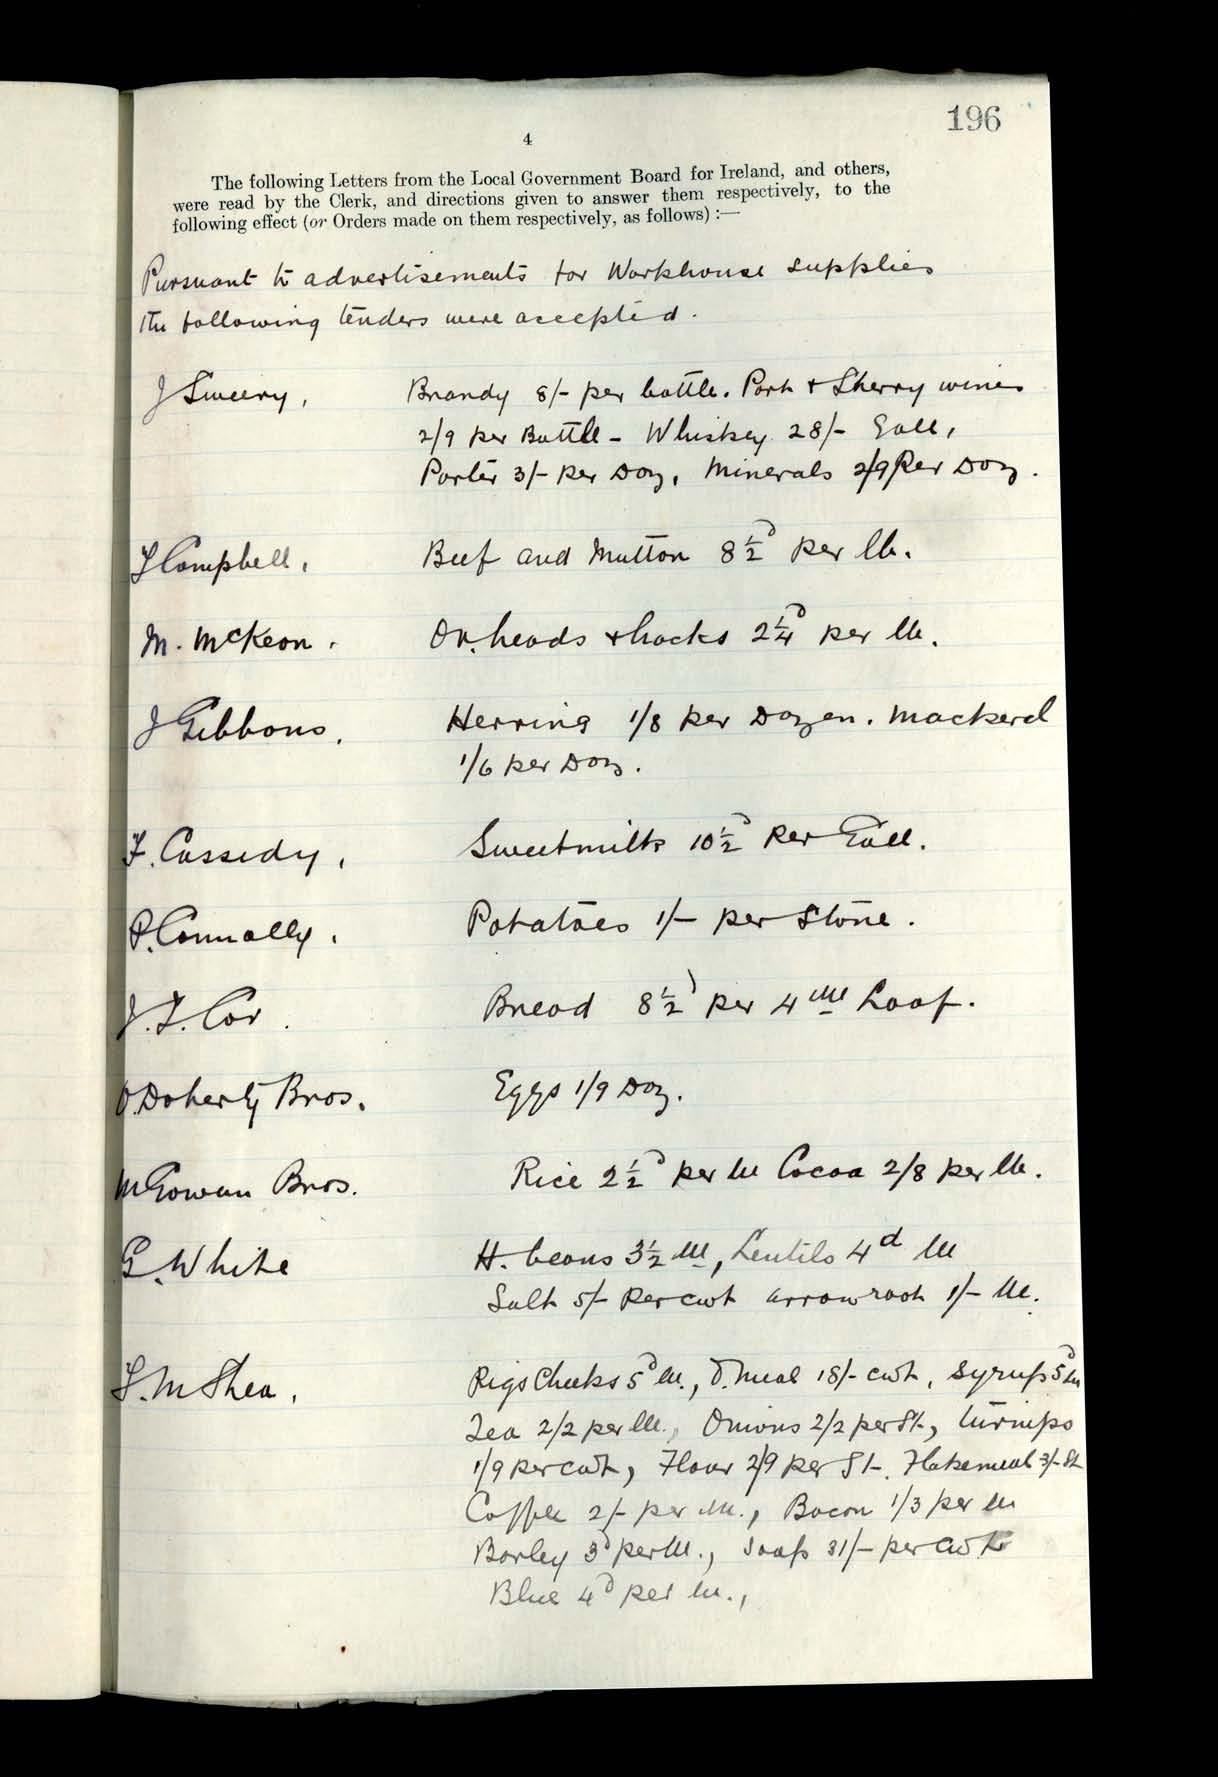 196
4
The following Letters from the Local Government Board for Ireland, and others,
were read by the Clerk, and directions given to answer them respectively, to the
following effect (or Orders made on them respectively, as follows) :—
Pursuant to advertisements for Workhouse supplies
the following tenders were accepted.
J Sweeny, Brandy 8/- per bottle. Port & Sherry wines
2/9 per Bottle - Whiskey 28/- Gall,
Porter 3/- per Doz, Minerals 2/9 Per Doz.
Campbell, Beef and Mutton 8½d per lb.
M. McKeon. Ox heads & hocks 2¼d per lb.
J Gibbons, Herring 1/8 per Dozen. Mackerel
1/6 per Doz.
F. Cassidy, Sweetmilk 10½d Per Gall.
P. Connolly, Potatoes 1/- per Stone.
J. F. Cox. Bread 8½d per 4 lb Loaf.
O'Doherty Bros. Eggs 1/9 Doz.
McGowan Bros. Rice 2½d per lb Cocoa 2/8 per lb.
G. White H. beans 3½ lb, Lentils 4d lb
Salt 5/- Per cwt arrowroot 1/- lb.
McShea, Pigs Cheeks 5d lb., O. Meal 18/- cwt, Syrup 5d lb
Tea 2/2 per lb., Onions 2/2 per St, turnips
1/9 per cwt, Flour 2/9 per St. Flakemeal 3/- St
Coffee 2/- per lb., Bacon 1/3 per lb
Barley 3d per lb., soap 31/- per cwt
Blue 4d per lb.,